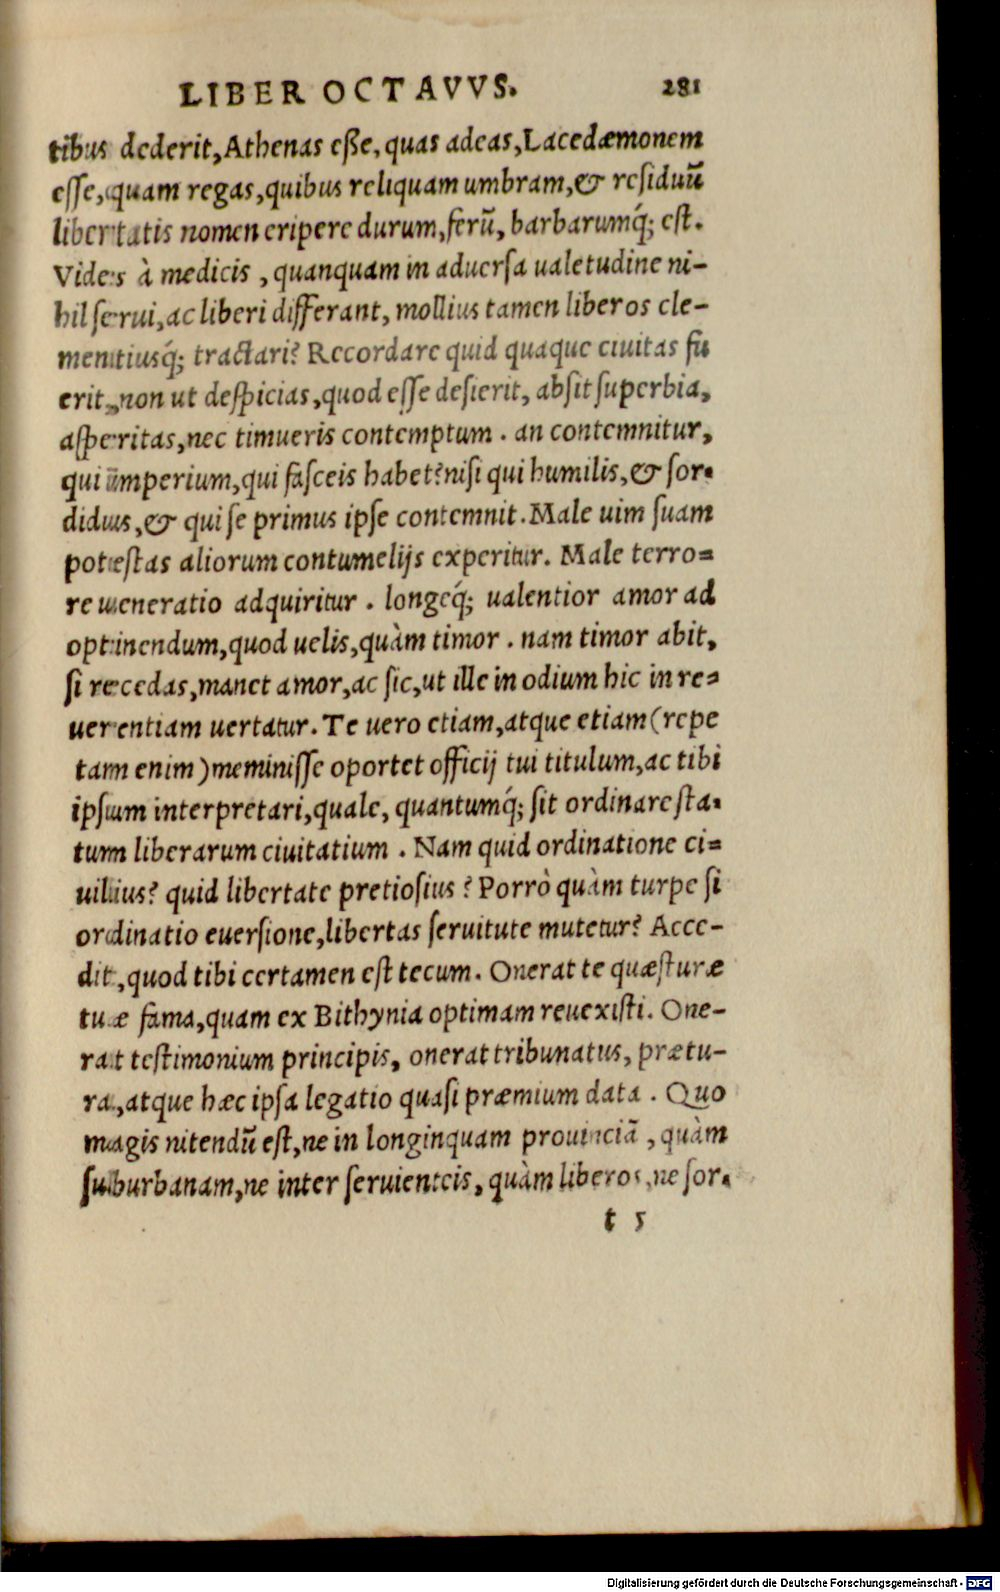 LIBER OCTAVVS. 281
tibus dederit, Athenas eſſe, quas adeas, Lacedæmonem
eſſe, quam regas, quibus reliquam umbram, & reſiduū
libertatis nomen eripere durum, ferū, barbarumq́; eſt.
Vides à medicis, quanquam in aduerſa ualetudine ni-
hil ſerui, ac liberi differant, mollius tamen liberos cle-
mentiusq́; tractari? Recordare quid quaque ciuitas fu
erit, non ut deſpicias, quod eſſe deſierit, abſit ſuperbia,
aſperitas, nec timueris contemptum. an contemnitur,
qui imperium, qui faſceis habet? niſi qui humilis, & ſor-
didus, & qui ſe primus ipſe contemnit. Male uim ſuam
poteſtas aliorum contumelijs experitur. Male terro-
re ueneratio adquiritur. longeq́; ualentior amor ad
optinendum, quod uelis, quàm timor. nam timor abit,
ſi recedas, manet amor, ac ſic, ut ille in odium hic in re-
uerentiam uertatur. Te uero etiam, atque etiam (repe
tam enim) meminiſſe oportet officij tui titulum, ac tibi
ipſum interpretari, quale, quantumq́; ſit ordinare ſta-
tum liberarum ciuitatium. Nam quid ordinatione ci-
uilius? quid libertate pretioſius? Porrò quàm turpe ſi
ordinatio euerſione, libertas ſeruitute mutetur? Acce-
dit, quod tibi certamen eſt tecum. Onerat te quæſturæ
tuæ fama, quam ex Bithynia optimam reuexiſti. One-
rat teſtimonium principis, onerat tribunatus, prætu-
ra, atque hæc ipſa legatio quaſi præmium data. Quo
magis nitendū eſt, ne in longinquam prouinciā, quàm
ſuburbanam, ne inter ſeruienteis, quàm liberos, ne ſor-
t 5
Digitalisierung gefördert durch die Deutsche Forschungsgemeinschaft - DFG